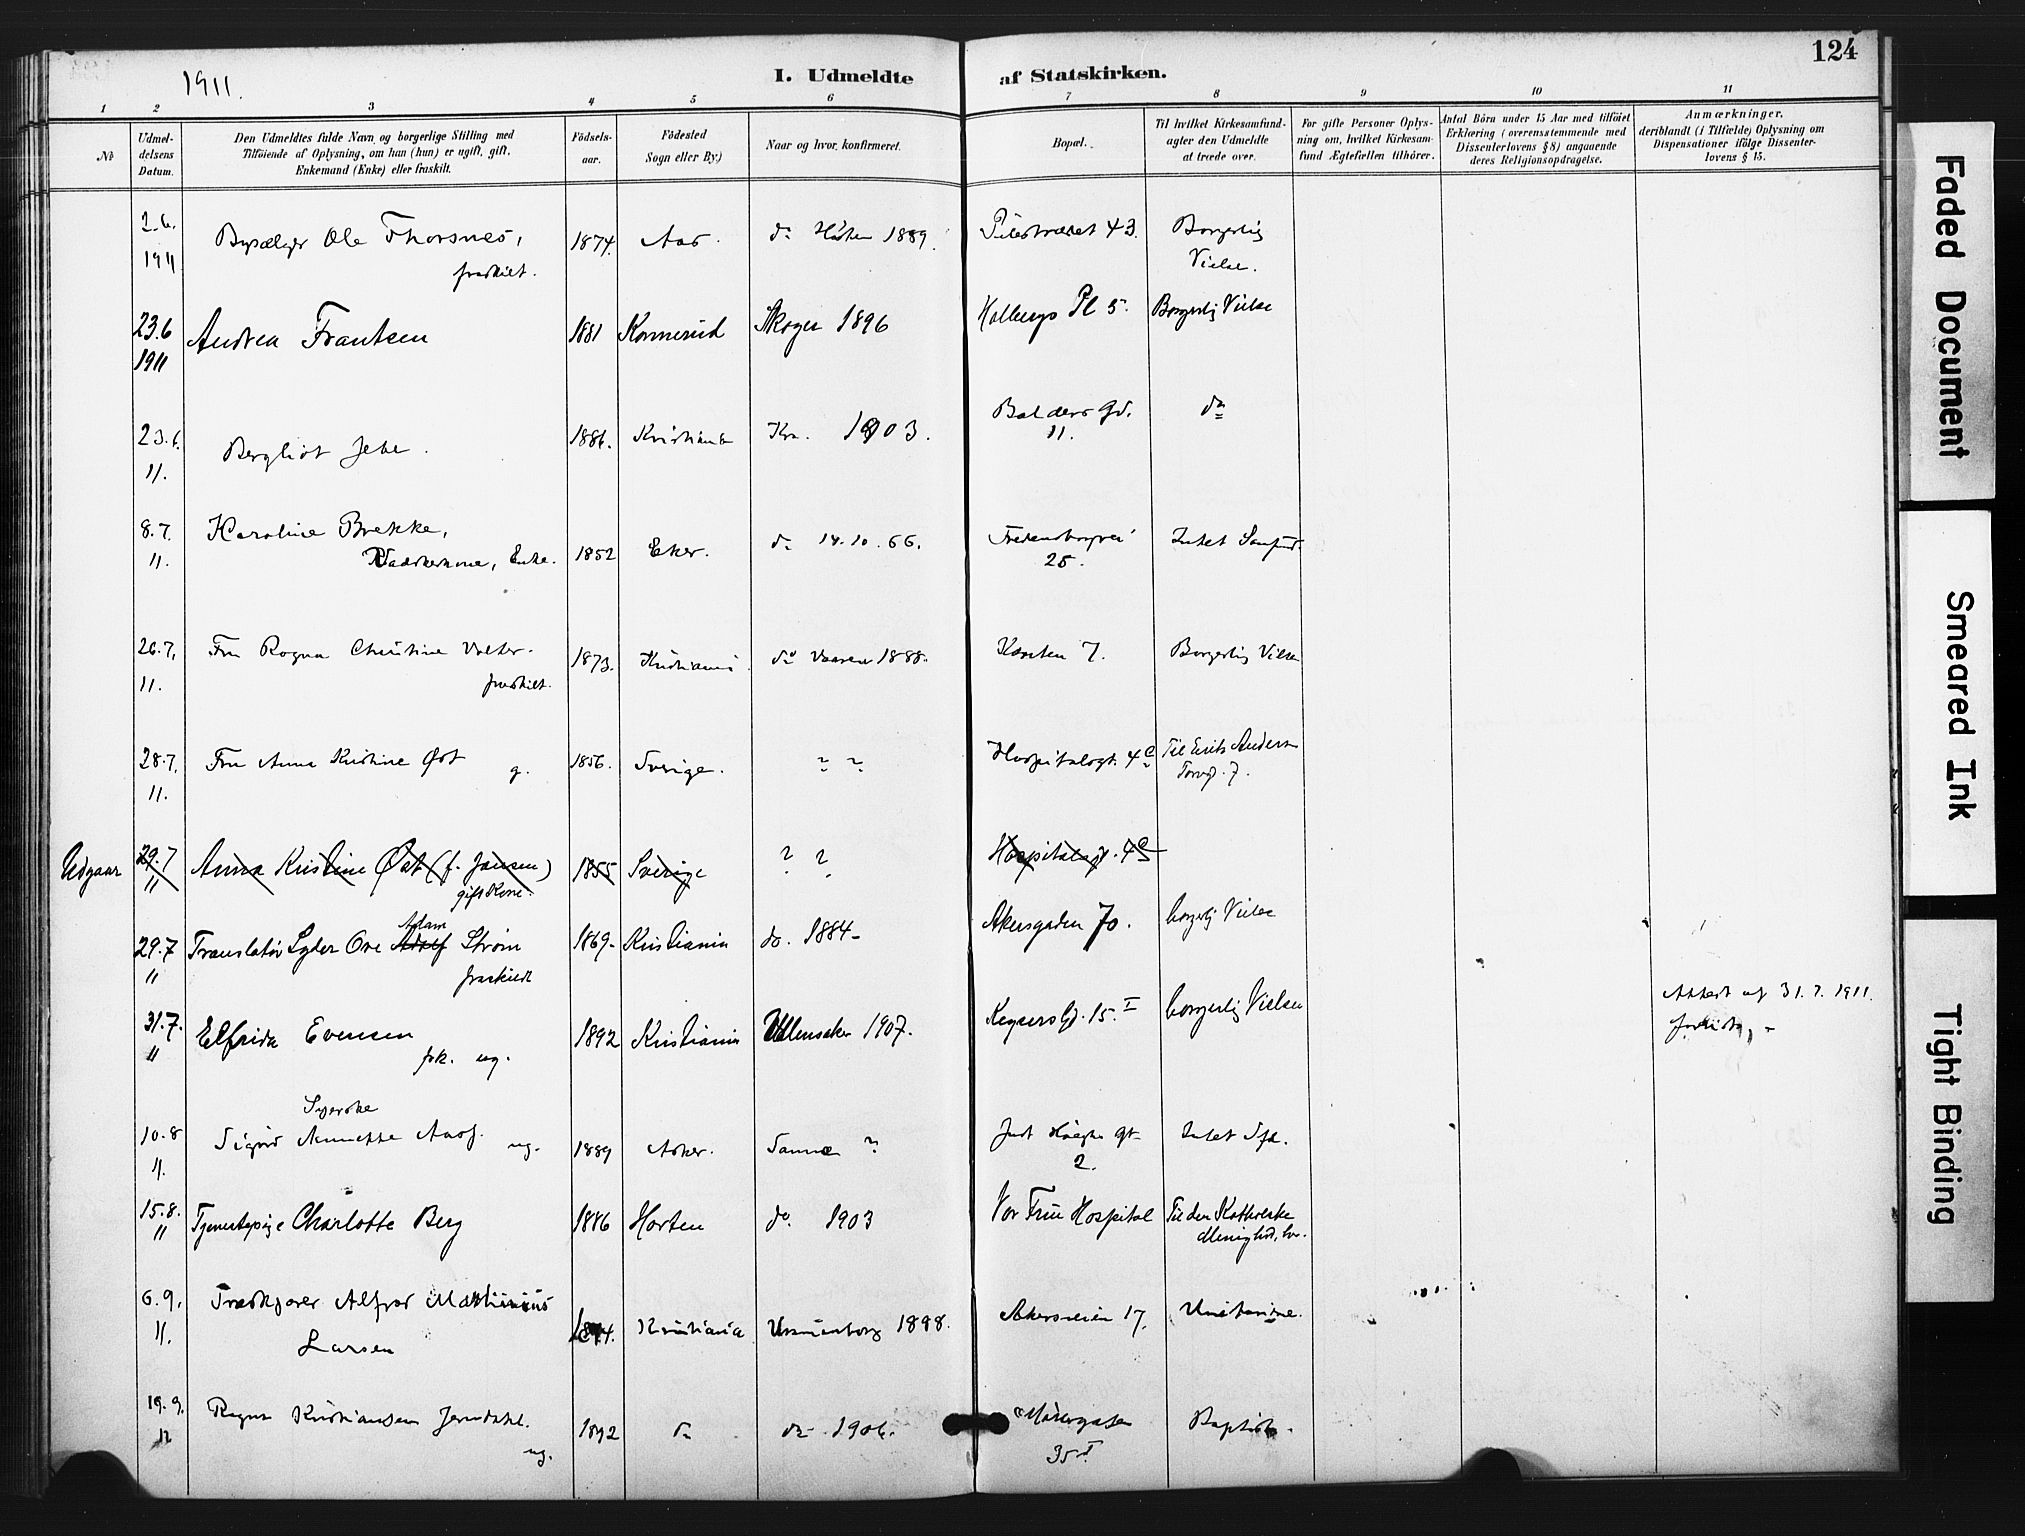 124
1911.
I. Udmeldte af Statskirken.
1 2 3 4 5 6 7 8 9 10 11
No
Udmel-
delsens
Datum.
Den Udmeldtes fulde Navn og borgerlige Stilling med
Tilföiende af Oplysning, om han (hun) er ugift, gift,
Enkemand (Enke) eller fraskilt.
Födsels-
aar.
Födested
Sogn eller By.)
Naar og hvor konfirmeret.
Bopæl.
Til hvilket Kirkesamfund-
agter den Udmeldte
at træde over.
For gifte Personer Oplys-
ning om, hvilket Kirkesam-
fund Ægtefællen tilhörer.
Antal Börn under 15 Aar med tilföiet
Erklæring (overensstemmende med
Dissenterlovens § 8) angaaende
deres Religionsopdragelse.
Anmærkninger,
deriblandt (i Tilfælde) Oplysning om
Dispensationer ifölge Dissenter-
lovens § 15.
2.6. Ole Thorsnes, 1874. Aas. do Hösten 1889. Pilestrædet 43. Borgerlig
1911 fraskilt. Vielse.
23.6 Andrea Frantsen 1881 Konnerud Skoger 1896 Holbergs Pl 5. Borgerlig Vielse
1911
23.6. Bergliot Jebe. 1886. Kristiania Kra. 1903. Balders Gd. do
11. 11.
8.7. Karoline Brekke, 1852 Eker. do 14.10.66. Fredensborgvei Intet Samfund.
11. Vaskerkone, Enke. 25.
26.7. Fru Ragna Christine 1873. Kristiania. do Vaaren 1888. Karsten 7. Borgerlig Vielse
11. fraskilt.
28.7. Fru Anna Kristine Øst g. 1856. Sverige. ? ? Hospitalsgt. 4c Til Eriks Anders
11. Torvg. 7.
Udgaar 29.7 Anna Kristine Øst (f. Jansen) 1855 Sverige ? ? Hospitalsgt. 4c
11 gift Kone.
Adam
29.7 Translatör Lyder Ove Adolf Ström 1869- Kristiania do. 1884- Akersgaden 70. borgerlig Vielse
11 fraskildt
31.7. Elfrida Evensen 1892 Kristiania Ullensaker 1907. Keysers Gd. 15.I borgerlig Vielsen Attest af 31.7.1911.
11 frk. ug.
Syerske
10.8 Sigrid Annette ug. 1889 Asker. Samme ? Just Höeghs gt. Intet Sfd.
11. 2.
15.8. Tjenestepige Charlotte Berg 1886 Horten do. 1903 Vor Frue Hospital Til den Katholske
11 Menighed, her.
6.9. Træskjærer Alfred Mathinius Kristiania Uranienborg 1898. Akersveien 17. Unitarierne.
11. Larsen
19.9. Ragna Kristiansen 1892 do do 1906. Möllergaden Baptist.
11 ug. 35 I.
Faded Document
Smeared Ink
Tight Binding